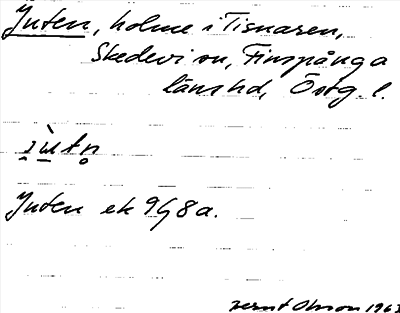 Juten, holme i Tisnaren,
Skedevi sn, Finspånga
länshd, Östg. l.
Juten ek 9G8a.
Bernt Olsson 1963